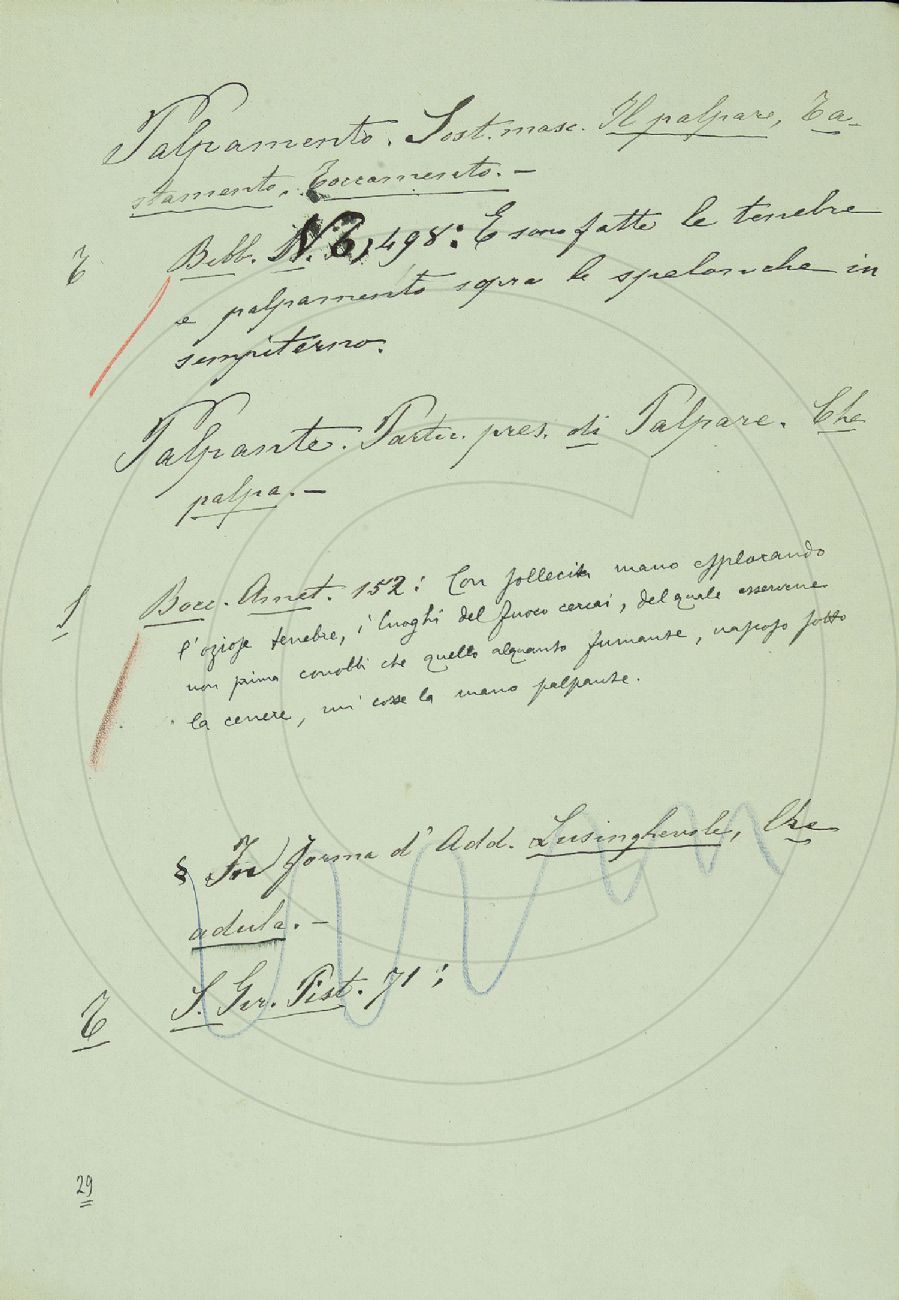 Palpamento. Sost. masc. Il palpare, Ta-
stamento, Toccamento. –
T Bibb. N. 6, 498: E sono fatte le tenebre
e palpamento sopra le spelonche in
sempiterno.
Palpante. Partic. pres. di Palpare. Che
palpa. –
1 Bocc. Amet. 152: Con sollecita mano esplorando
l'oziose tenebre, i luoghi del fuoco cercai, del quale esservene
non prima conobbi che quello alquanto fumante, nascoso sotto
la cenere, mi cosse la mano palpante.
§ In forma d' Add. Lusinghevole, Che
adula. –
T S. Ger. Pist. 71:
29